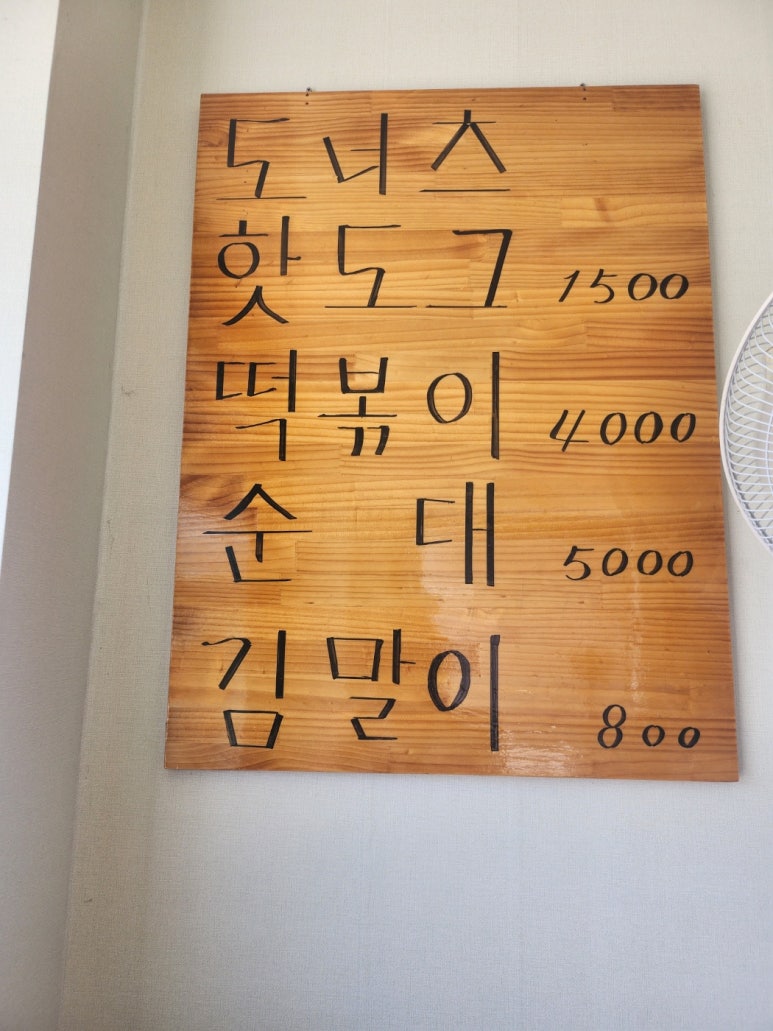 도너츠
핫도그 1500
떡볶이 4000
순대 5000
김말이 800